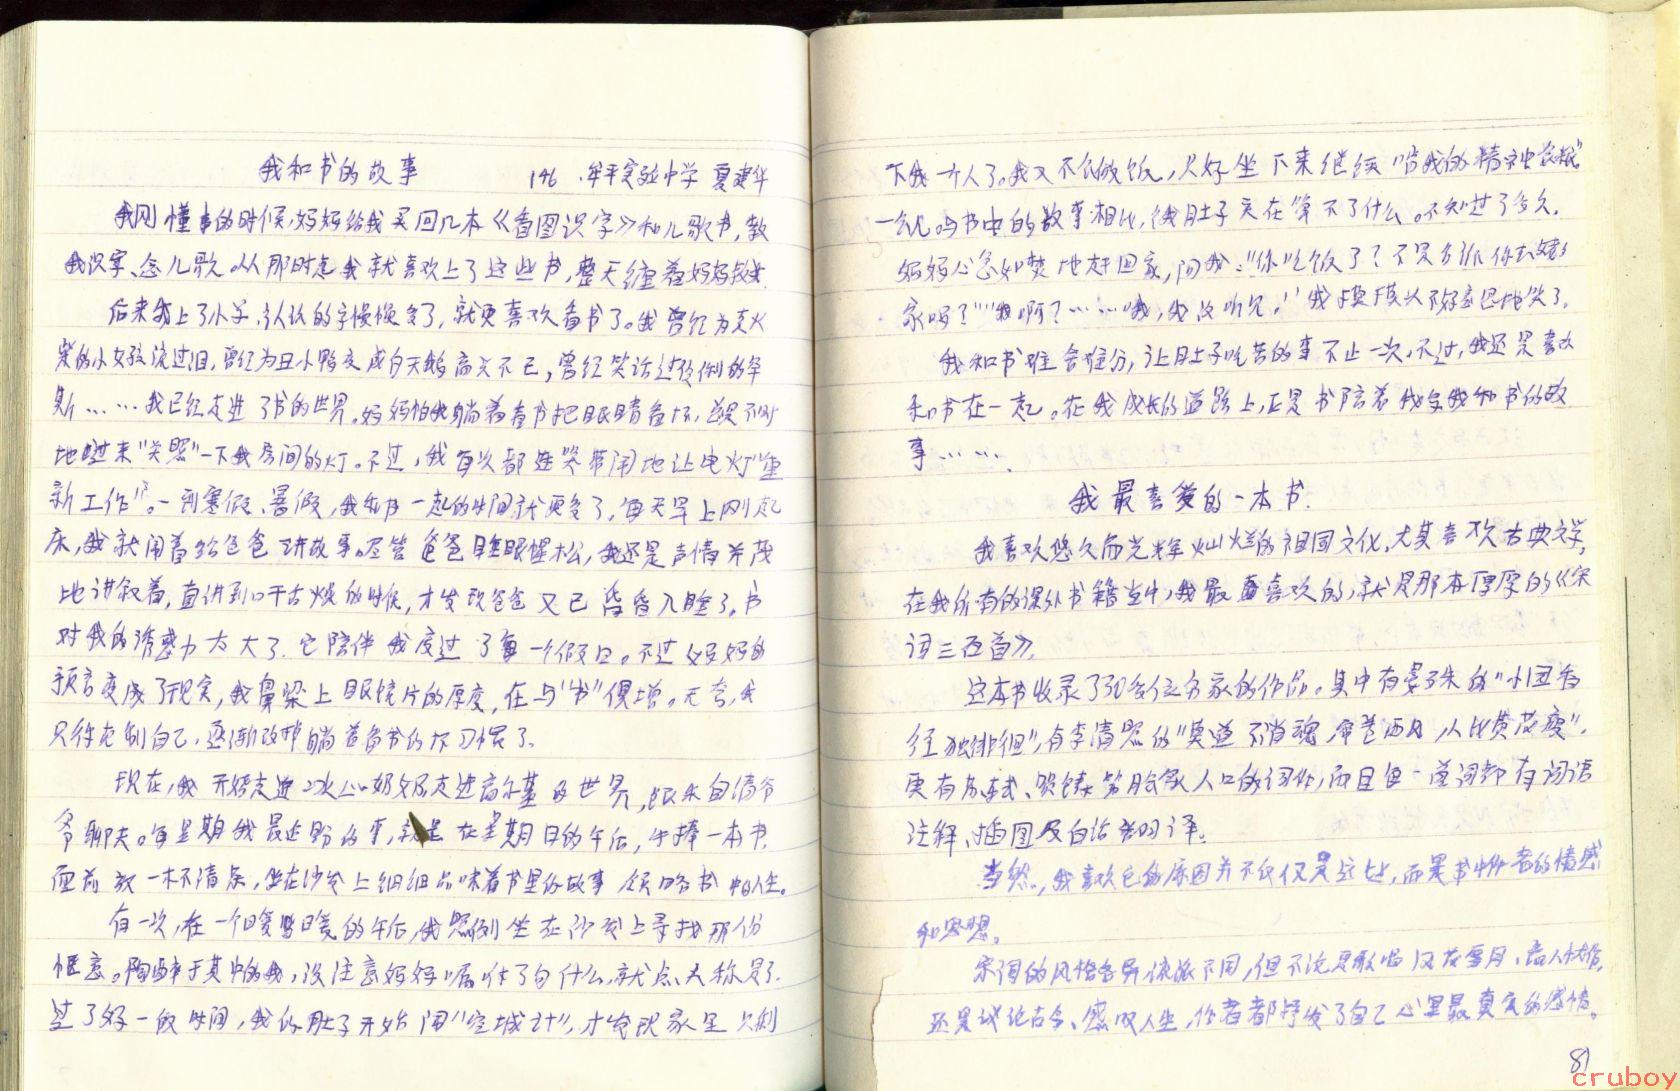 我和书的故事 146 牟平实验中学 夏建华
我刚懂事的时候,妈妈给我买回几本《看图识字》和儿歌书,教
我识字、念儿歌。从那时起我就喜欢上了这些书,整天缠着妈妈教我.
后来我上了小学,认识的字慢慢多了,就更喜欢看书了。我曾经为卖火
柴的小女孩流过泪,曾经为丑小鸭变成白天鹅高兴不已,曾经笑话过
斯……我已经走进了书的世界。妈妈怕我躺着看书把眼睛看坏,总是不时
地过来“关照”一下我房间的灯。不过,我每次都连哭带闹地让电灯“重
新工作”。一到寒假、暑假,我和书一起的时间就更多了,每天早上刚起
床,我就闹着给爸爸讲故事。尽管爸爸睡眼惺松,我还是声情并茂
地讲叙着,直讲到口干舌燥的时候,才发现爸爸又已昏昏入睡了。书
对我的诱惑力太大了.它陪伴我度过了每一个假日。不过妈妈的
预言变成了现实,我鼻梁上眼镜片的厚度,在与“书”俱增。无奈,我
只得克制自己,逐渐改掉躺着看书的坏习惯了。
现在,我开始走进冰心奶奶走进高尔基的世界,跟朱自清爷
爷聊天。每星期我最近盼的事,就是在星期日的午后,手捧一本书.
面前放一杯清茶,坐在沙发上细细品味着书里的故事 领略书中的人生。
有一次,在一个暖暖的午后,我照例坐在沙发上寻找那份
惬意。陶醉于其中的我,没注意妈妈嘱咐了句什么,就点头称是了.
过了好一段时间,我的肚子开始闹“空城计”,才发现家里只剩
下我一个人了。我又不会做饭,只好坐下来继续“啃我的精神食粮”
一会儿。与书中的故事相比,饿肚子实在算不了什么。不知过了多久,
妈妈心急如焚地赶回家,问我:“你吃饭了?不是告诉你去姥姥
家吗?”“我啊?……哦,我没听见!”我摸摸头不好意思地笑了。
我和书难舍难分,让肚子吃苦的事不止一次,不过,我还是喜欢
和书在一起。在我成长的道路上,正是书陪着我与我和书的故
事……
我最喜爱的一本书.
我喜欢悠久而光辉灿烂的祖国文化,尤其喜欢古典文学,
在我所有的课外书籍当中,我最喜欢的,就是那本厚厚的《宋
词三百首》.
这本书收录了70多位名家的作品。其中有晏殊的“小园香
径独徘徊”,有李清照的“莫道不消魂,帘卷西风,人比黄花瘦”.
更有苏轼、贺铸等脍炙人口的词作,而且每一首词都有词语
注释、插图及白话翻译。
当然,我喜欢它的原因并不仅仅是这些,而是书中作者的情感
和思想。
宋词的风格各异流派不同,但不论是歌唱风花雪月、
还是议论古今、感叹人生,作者都抒发了自己心里最真实的感情。
81
cruboy